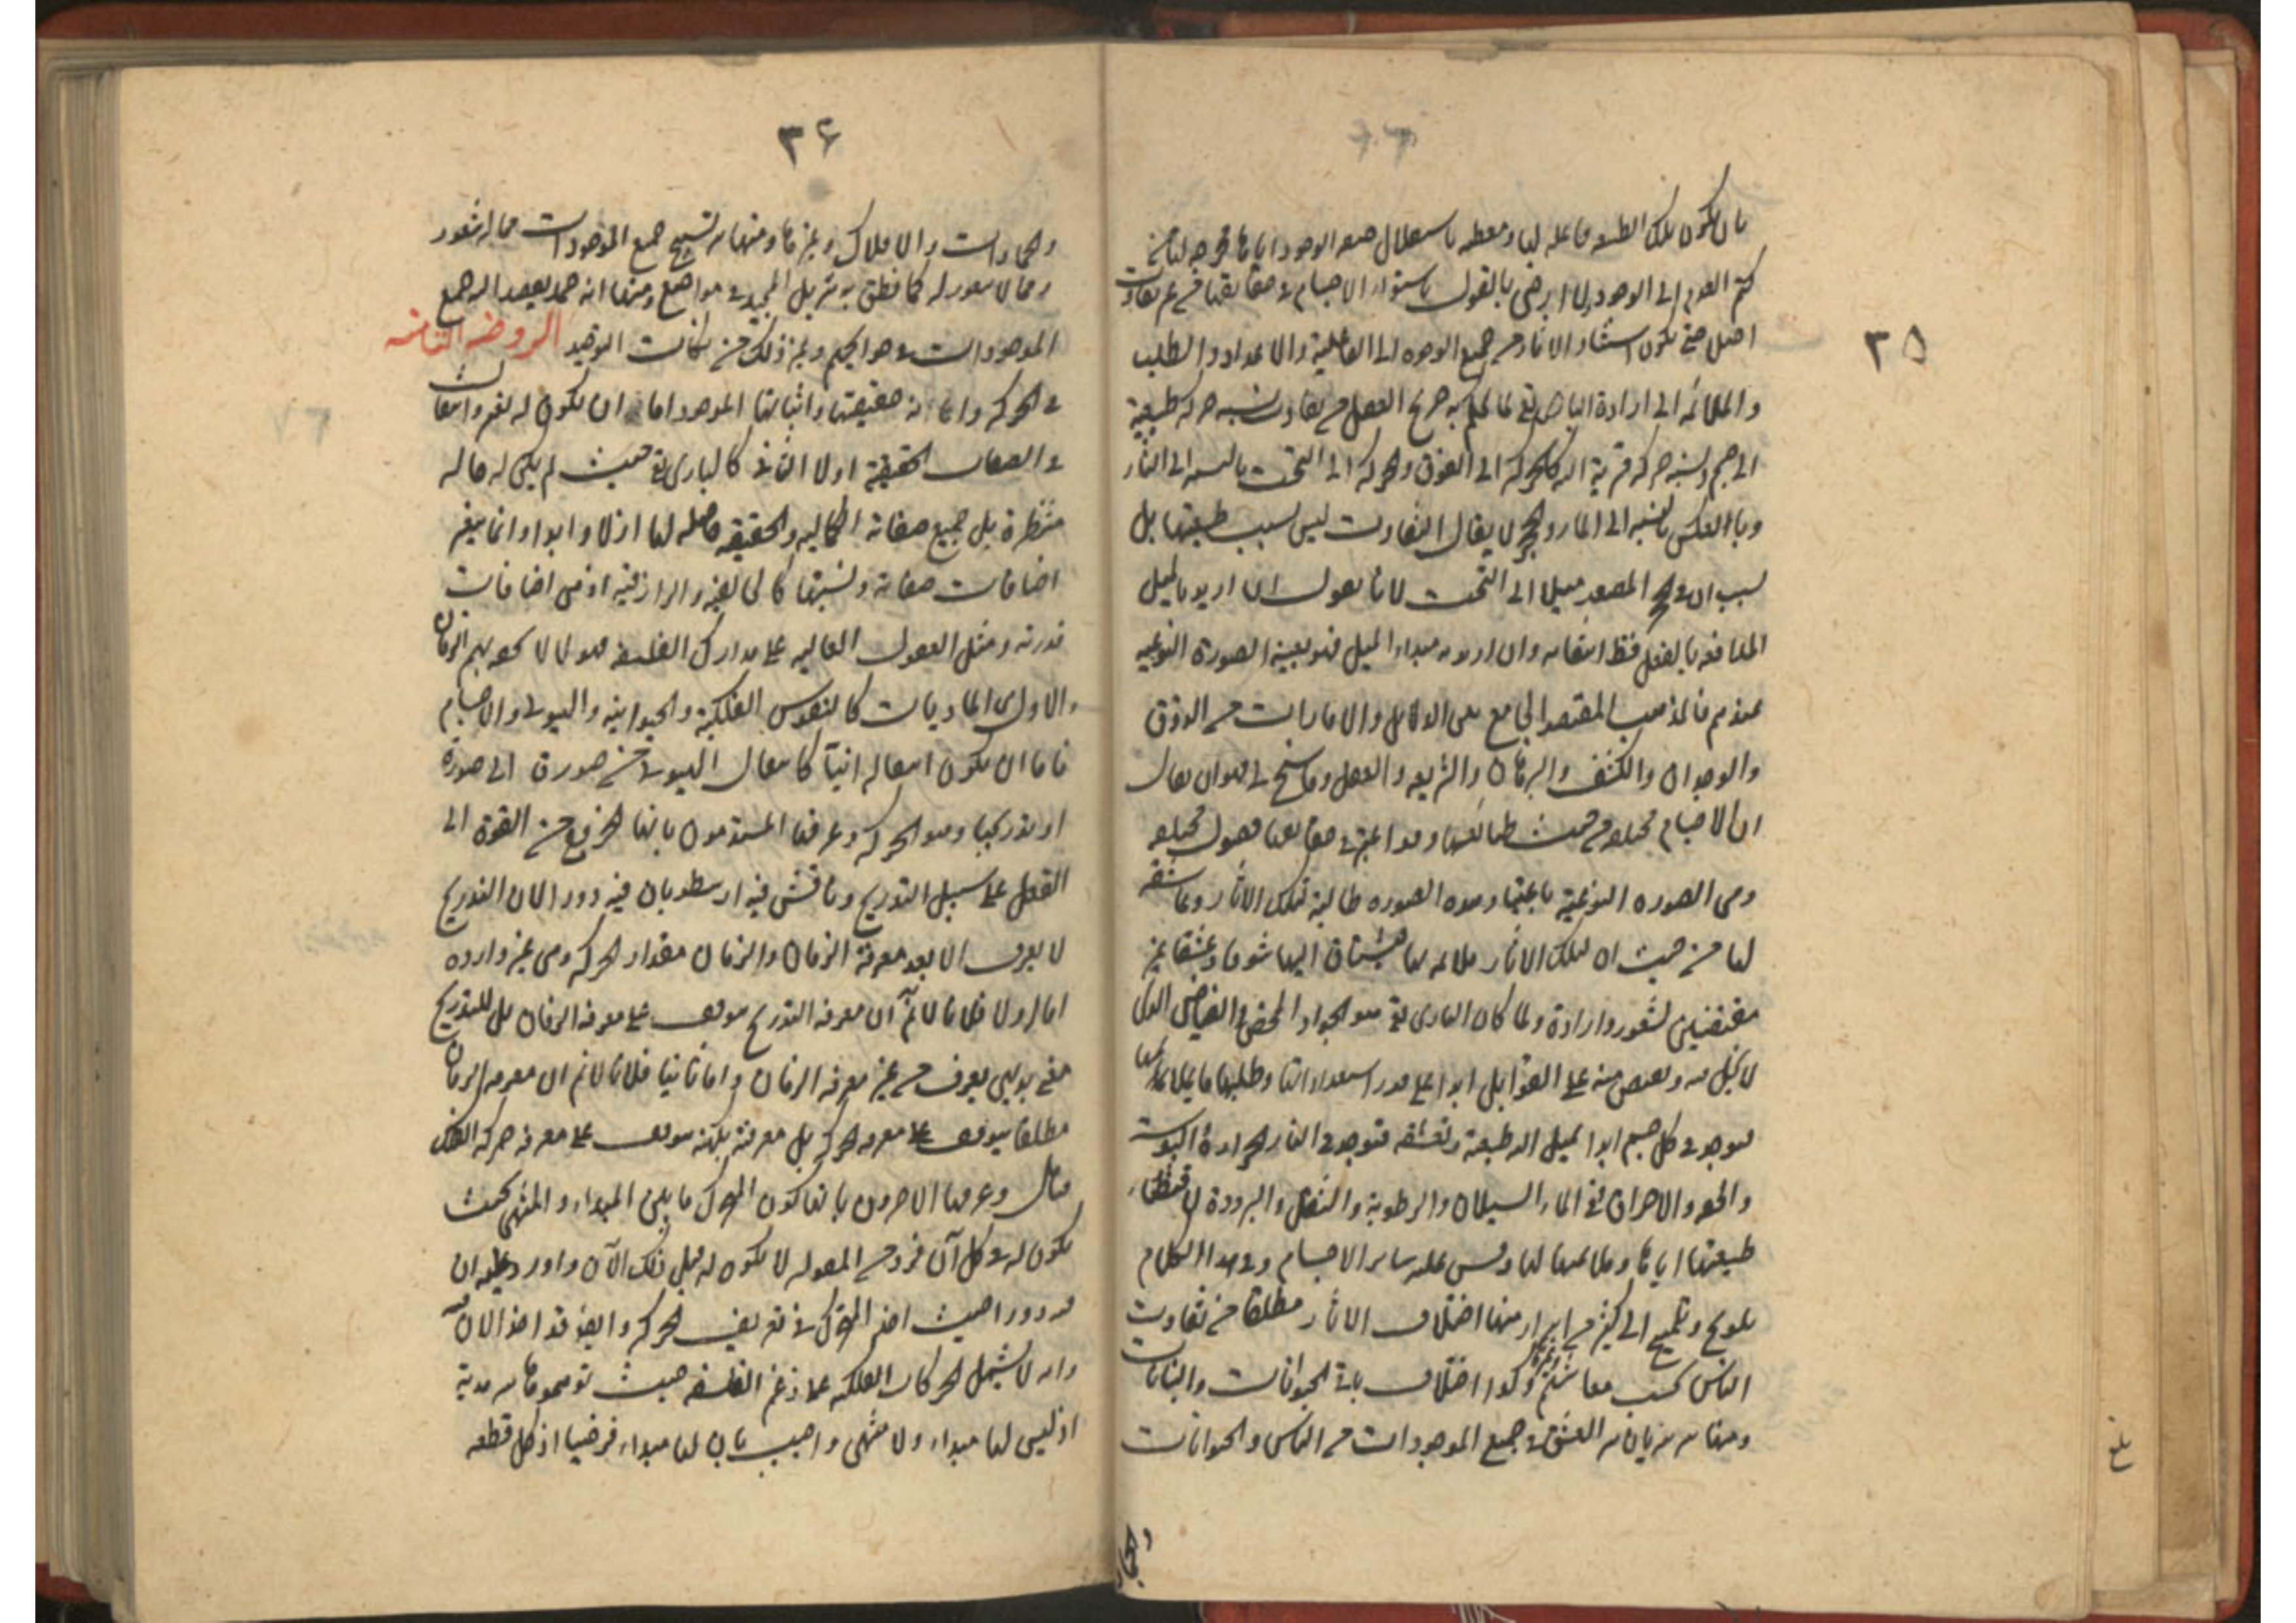 ٣٥
بان يكون تلك الطبيعة فاعله لها ومعطيه باستقلال صفة الوجود اياها مخرجه لها من
كتم العدم الى الوجود بل لا يرضى بالقول باستواء الاجسام في حقايقها من غير تفاوت
اصل حتى يكون استناد الاثار من جميع الوجوه الى الفاعلية والاعداد والطلب
والملائمه الى ارادة البارى تعالى لما يحكم به صريح العقل من تفاوت نسبه حركه طبيعية
الى جسم ونسبه حركه قسرية اليه كالحركه الى الفوق والحركه الى التحت بالنسبه الى النار
وبالعكس بالنسبه الى الماء والحجر لا يقال التفاوت ليس بسبب طبيعتها بل
بسبب ان في الحجر المصعد ميلا الى التحت لانا نقول ان اريد بالميل
المدافعه بالفعل فقط انتفائه وان اريد به مبداء الميل فهو بعينه الصورة النوعيه
عندهم فالمذهب المقتصد الجامع بين الدلائل والامارات من الذوق
والوجدان والكشف والبرهان والشريعه والعقل وما سنح لي هو ان يقال
ان الاجسام مختلفه من حيث طبائعها وهذا غير في حقايقها فصول مختلفه
وهي الصوره النوعية باعينها وهذه الصوره طالبة لتلك الاثار وعاشقه
لها من حيث ان تلك الاثار ملائمه لها فيشتاق اليها شوقا وعشقا غير
مقتضيين لشعور وارادة ولما كان البارى تعالى هو الجواد المحض والفياض الذى
لا بخل منه ويفيض منه على القوابل ابدا على قدر استعداداتها وطلبها ما يلائمها
فيوجد في كل جسم ابدا ما يميل اليه طبيعته وتعشقه فتوجد في النار الحرارة واليبوسة
والخفه والاحراق وفي الماء السيلان والرطوبة والثقل والبرودة لاقتضاء
طبيعتها اياها وملائمتها لها وقس عليه سائر الاجسام وفي هذا الكلام
تلويح وتلميح الى كثير من اسرار منها اختلاف الاثار مطلقا من تفاوت
الناس كسب معاشهم وغيره وكذا اختلاف باقي الحيوانات والنباتات
ومنها سر سريان سر العشق في جميع الموجودات من الناس والحيوانات
والجمادات
بلغ
٣٦
والجمادات والافلاك وغيرها ومنها سر تسبيح جميع الموجودات مما له شعور
ومما لا شعور له كما نطق به تنزيل المجيد في مواضع ومنها انه صمد يصمد اليه جميع
الموجودات في حوايجهم وغير ذلك من نكات التوحيد الروضه الثامنه
في الحركه وانه حقيقتها واثباتها الموجود اما ان لا يكون له تغير وانتقالات
في الصفات الحقيقية اولا الثاني كالبارى تعالى حيث لم يكن له حاله
منتظرة بل جميع صفاته الكماليه والحقيقيه حاصله لها ازلا وابدا وانما يتغير
اضافات صفاته ونسبتها كالخالقية والرازقيه اذ هي اضافات
قدرته ومثل العقول العاليه على مدارك الفلسفه هؤلاء لا يحويهم الزمان
والاول الماديات كالنفوس الفلكية والحيوانيه والهيولى والاجسام
فاما ان يكون انتقاله انيا كانتقال الهيولى من صورة الى صورة
او تدريجيا وهو الحركه وعرفها المتقدمون بانها الخروج من القوة الى
الفعل على سبيل التدريج وناقش فيه ارسطو بان فيه دورا لان التدريج
لا يعرف الا بعد معرفة الزمان والزمان مقدار الحركه وهي غير واردة
اما اولا فلانا لا نم ان معرفه التدريج موقوف على معرفه الزمان بل للتدريج
معنى بديهي يعرف من غير معرفه الزمان واما ثانيا فلانا لا نم ان معرفه الزمان
مطلقا يتوقف على معرفه الحركه بل معرفته بكنهه موقوف على معرفه حركه الفلك
فتامل وعرفها الاخرون بانها كون المتحرك ما بين المبداء والمنتهى بحيث
يكون له في كل آن فرد من المقوله لا يكون له قبل ذلك الآن واورد عليه ان
فيه دورا حيث اخذ المتحرك في تعريف الحركه وايضا قد اخذ الان فيه
وانه لا يشمل الحركات الفلكيه على زعم الفلسفه حيث توهموها سرمدية
اذ ليس لها مبداء ولا منتهى واجيب بان لها مبداء فرضيا اذ كل قطعه